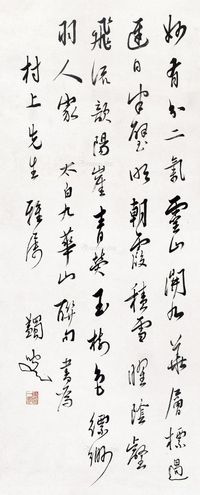 妙有分二氣靈山開九華層標遏
遲日半壁明朝霞積雪曜陰壑
飛流歕陽崖青熒玉樹色縹緲
羽人家 太白九華山聯句書為
村上先生雅屬 蠲叟